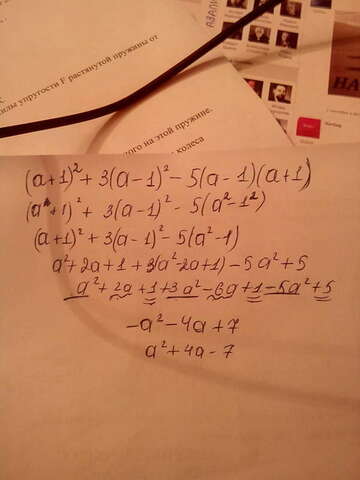 АЗАЛИ
к.
илы упругости F растянутой пружины от
ого на этой пружине.
колеса
НА
(a+1)² + 3(a-1)² - 5(a-1)(a+1)
(a²+1)² + 3(a-1)² - 5(a²-1²)
(a+1)² + 3(a-1)² - 5(a²-1)
a²+2a+1+3(a²-2a+1)-5a²+5
a²+2a+1+3a²-6a+1-5a²+5
-a²-4a+7
a²+4a-7